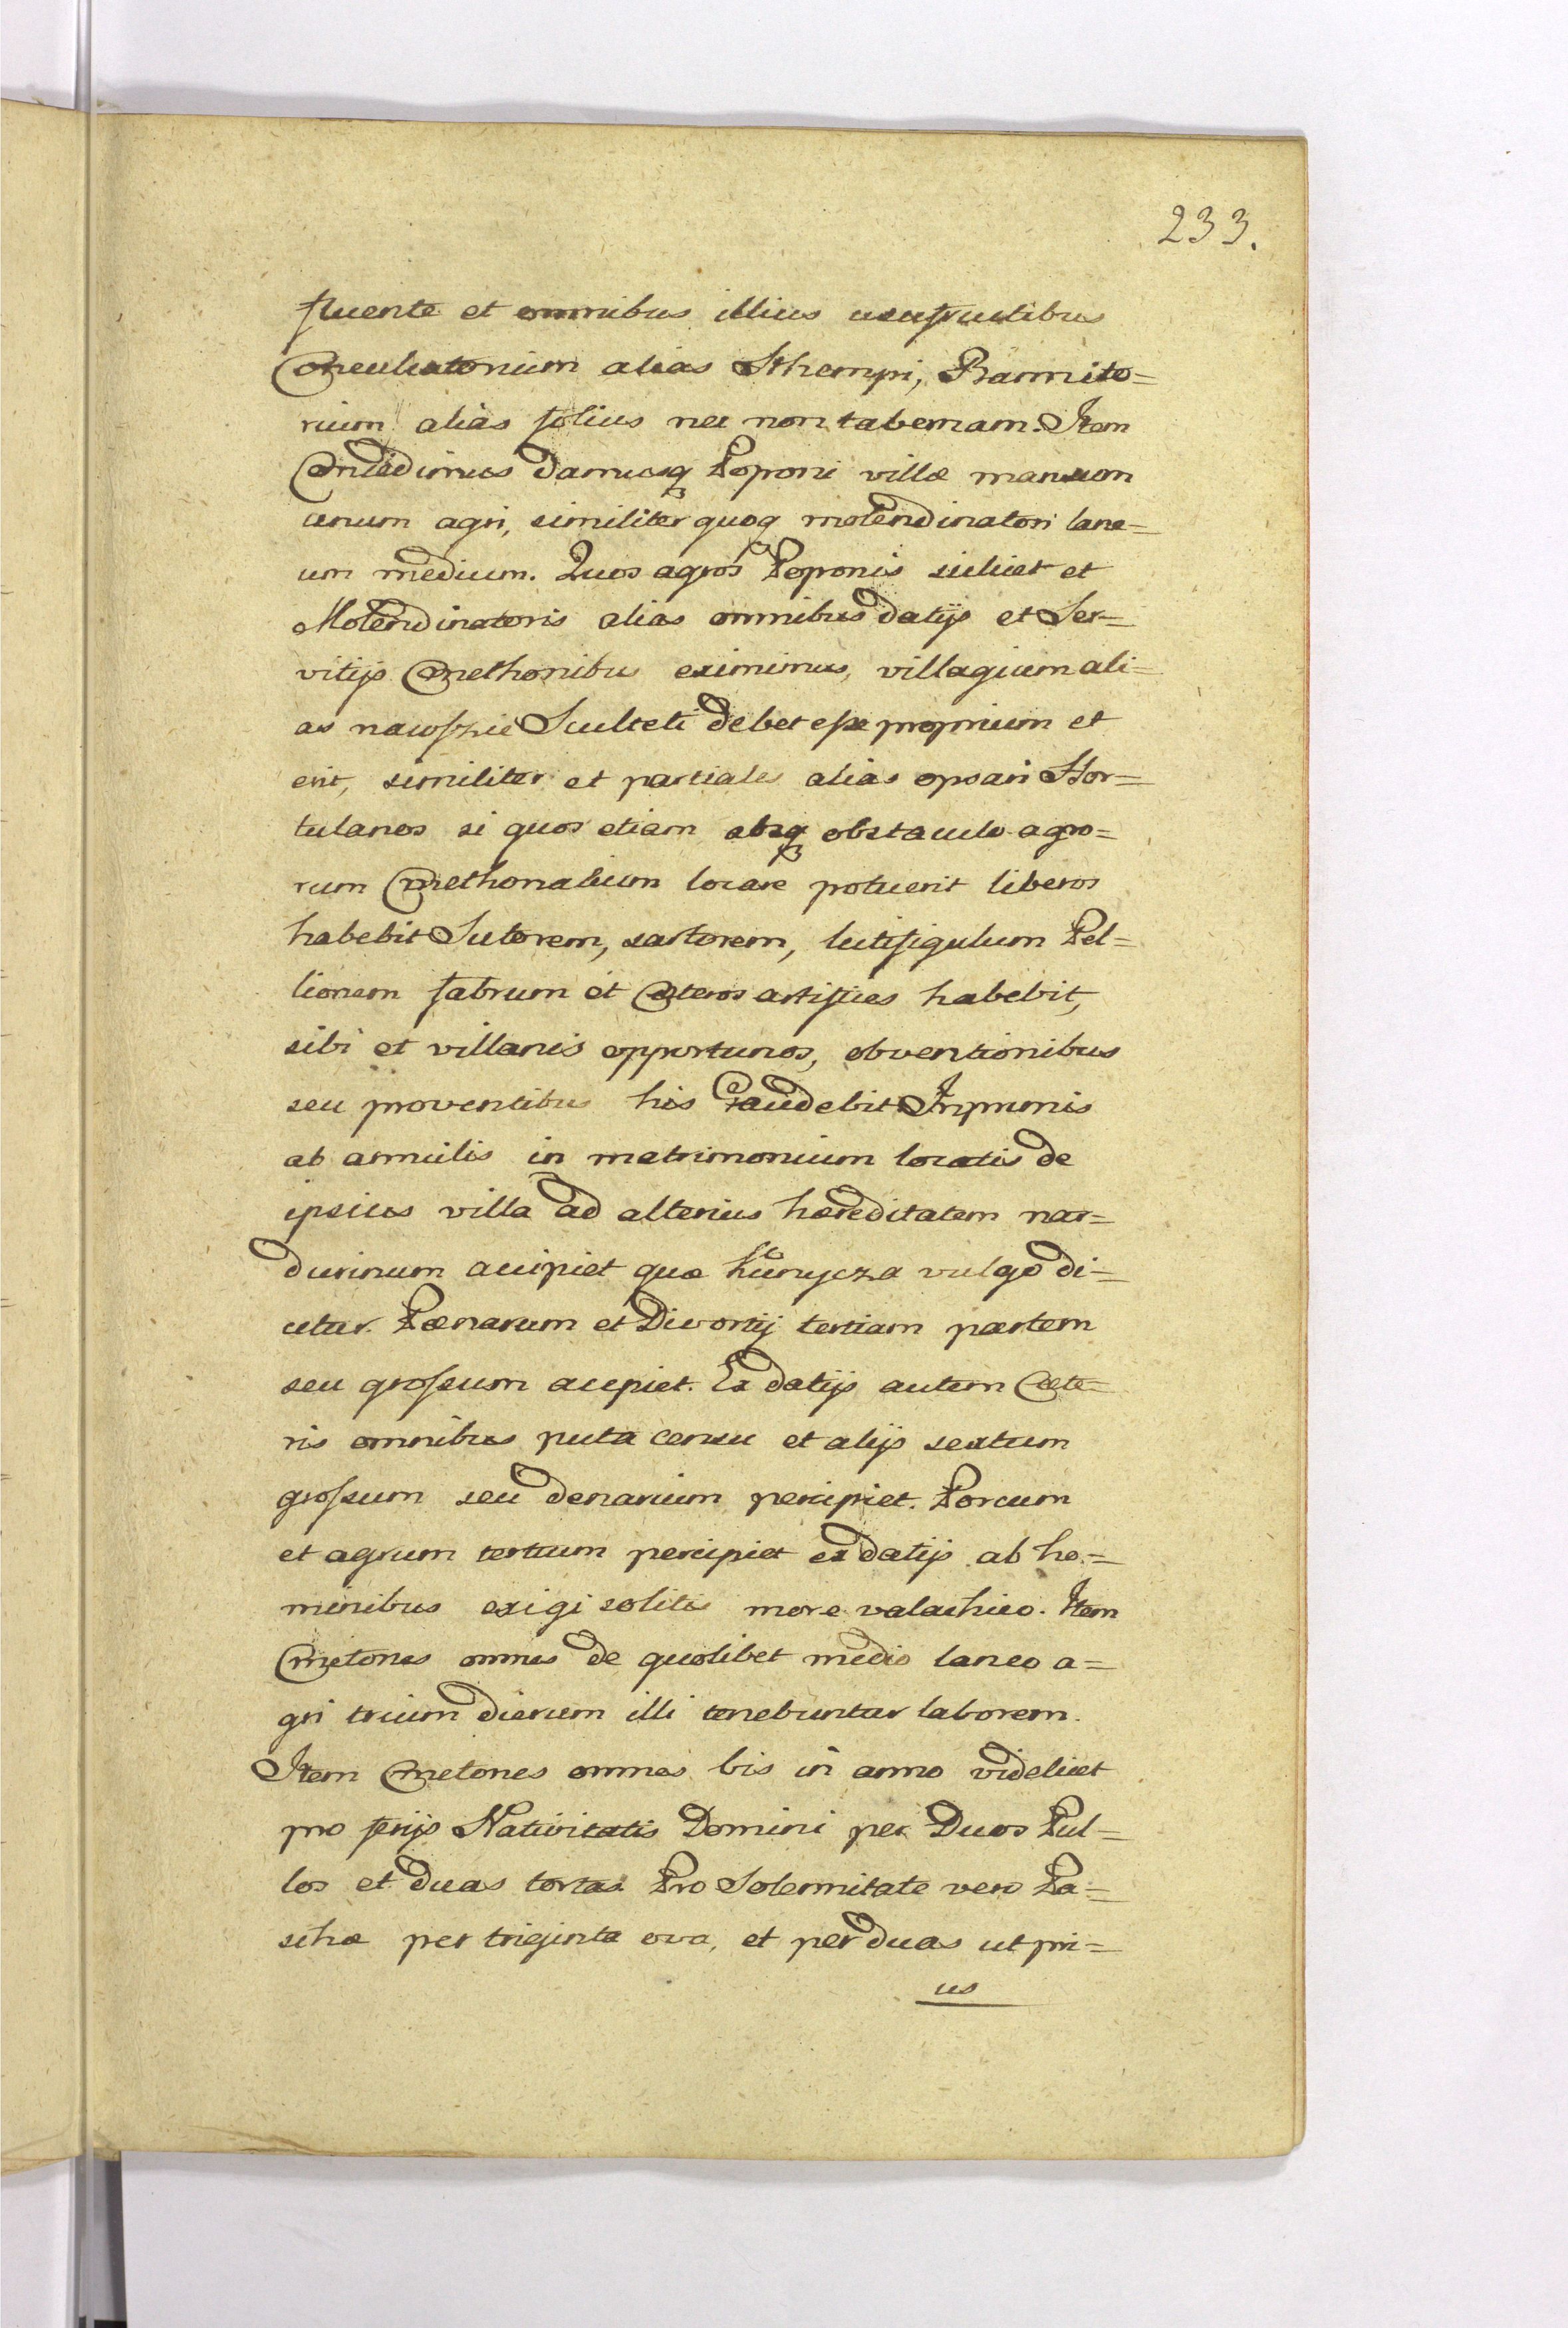 233.
fluente et omnibus illius usufructibus
Conculcatorium alias Sthempi, Pannito-
rium alias folius nec non tabernam. Item
Concedimus damusq Poponi villæ mansum
unum agri, similiter quoq molendinatori lane-
um medium. Quos agros Poponis scilicet et
Molendinatoris alias omnibus datijs et Ser-
vitijs Cmethonibus eximimus, villagium ali-
as nawszie Sculteti debet esse proprium et
erit, similiter et partiales alias opsari Hor-
tulanos si quos etiam absq obstaculo agro-
rum Cmethonalium locare potuerit liberos
habebit Sutorem, sartorem, lutifigulum Pel-
lionem fabrum et Cæteros artifices habebit,
sibi et villanis opportunos, obventionibus
seu proventibus his Gaudebit Inprimis
ab ancillis in matrimonium locatis de
ipsius villa ad alterius hæreditatem nar-
durinum accipiet quæ kunycza vulgo di-
citur. Pænarum et Divortij tertiam partem
seu grossum accipiet. Ex datijs autem Cæte-
ris omnibus puta censu et alijs sextum
grossum seu denarium percipiet. Porcum
et agnum tertium percipiet ex datijs ab ho-
minibus exigi solitis more valachico. Item
Cmetones omnes de quolibet medio laneo a-
gri trium dierum illi tenebuntur laborem.
Item Cmetones omnes bis in anno videlicet
pro ferijs Nativitatis Domini per Duos Pul-
los et duas tortas Pro Solemnitate vero Pa-
schæ per triginta ova, et per duas ut pri-
us